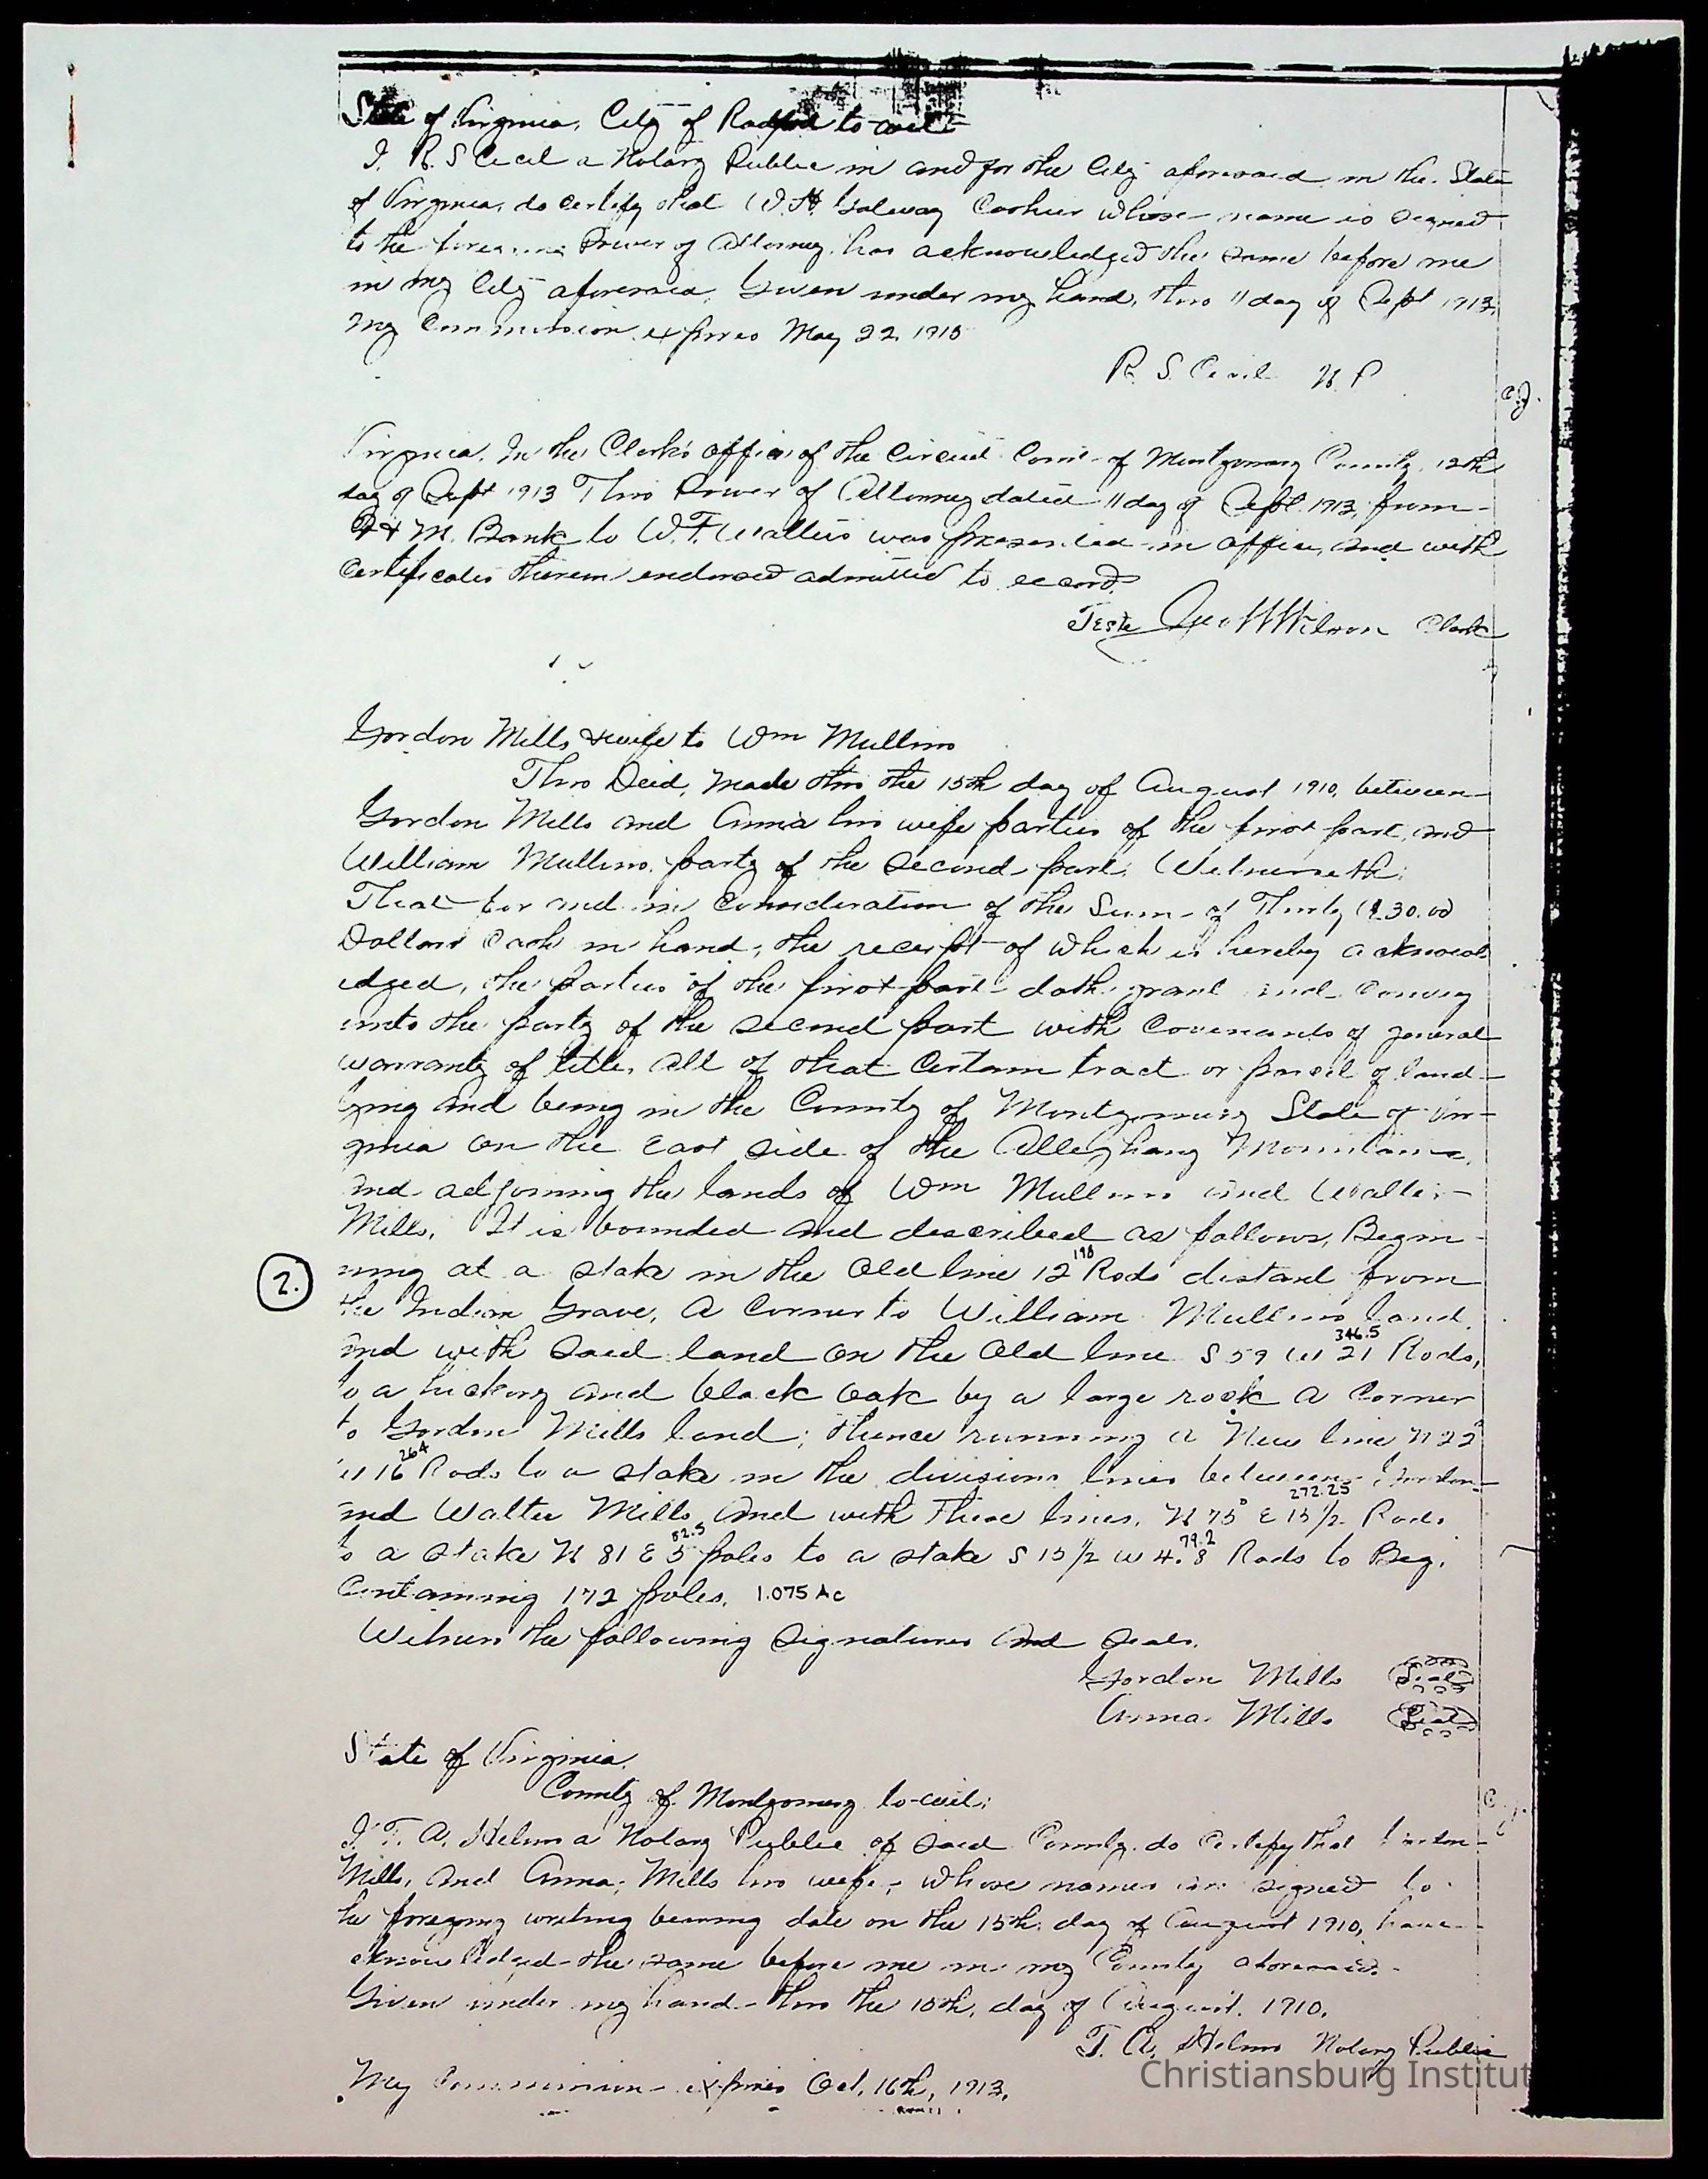 State of Virginia, City of Radford to-wit:
I, R. S Cecil a Notary Public in and for the City aforesaid in the State
of Virginia, do certify that W. H. Galway Cashier whose name is signed
to the foregoing Power of Attorney, has acknowledged the same before me
in my City aforesaid, Given under my hand, this 11 day of Sept 1913,
My Commission expires May 22, 1915
R. S. Cecil N. P
Virginia. In the Clerk's office of the Circuit Court of Montgomery County, 12th
day of Sept 1913 This Power of Attorney dated 11 day of Sept 1913, from
F & M. Bank to W. F. Walters was presented in office, and with
Certificates thereon endorsed admitted to record.
Teste Geo W Wilson Clerk
Gordon Mills & wife to Wm Mullins
This Deed, Made this the 15th day of August 1910, between
Gordon Mills and Anna his wife parties of the first part, and
William Mullins, party of the second part, Witnesseth:
That for and in Consideration of the Sum of Thirty ($30.00
Dollars Cash in hand, the receipt of which is hereby acknowl
edged, the parties of the first part doth grant and convey
unto the party of the second part with Covenants of general
warranty of title, all of that certain tract or parcel of land
lying and being in the County of Montgomery State of Vir-
ginia on the East side of the Alleghany Mountains,
and adjoining the lands of Wm Mullins and Walter
Mills. It is bounded and described as follows, Begin-
198
2. ning at a stake in the old line 12 Rods distant from
the Indian Grave, a corner to William Mullins land,
346.5
and with said land on the old line S 59 W 21 Rods,
to a hickory and black oak by a large rock a corner
to Gordon Mills land; thence running a New line N 22°
264
W 16 Rods to a stake in the division lines between Gordon
272.25
and Walter Mills, and with these lines, N 75° E 15 1/2 Rods
82.5 79.2
to a stake N 81 E 5 poles to a stake S 15 1/2 W 4.8 Rods to Beg.
Containing 172 poles, 1.075 Ac
Witness the following signatures and seals.
Gordon Mills (Seal)
Anna Mills (Seal)
State of Virginia,
County of Montgomery to-wit;
I, T. A. Helms a Notary Public of said County, do certify that Gordon
Mills, and Anna Mills his wife, whose names are signed to
the foregoing writing bearing date on the 15th day of August 1910, have
acknowledged the same before me in my County aforesaid.
Given under my hand this the 15th, day of August, 1910,
T. A. Helms Notary Public
My Commission expires Oct, 16th, 1913,
Christiansburg Institut